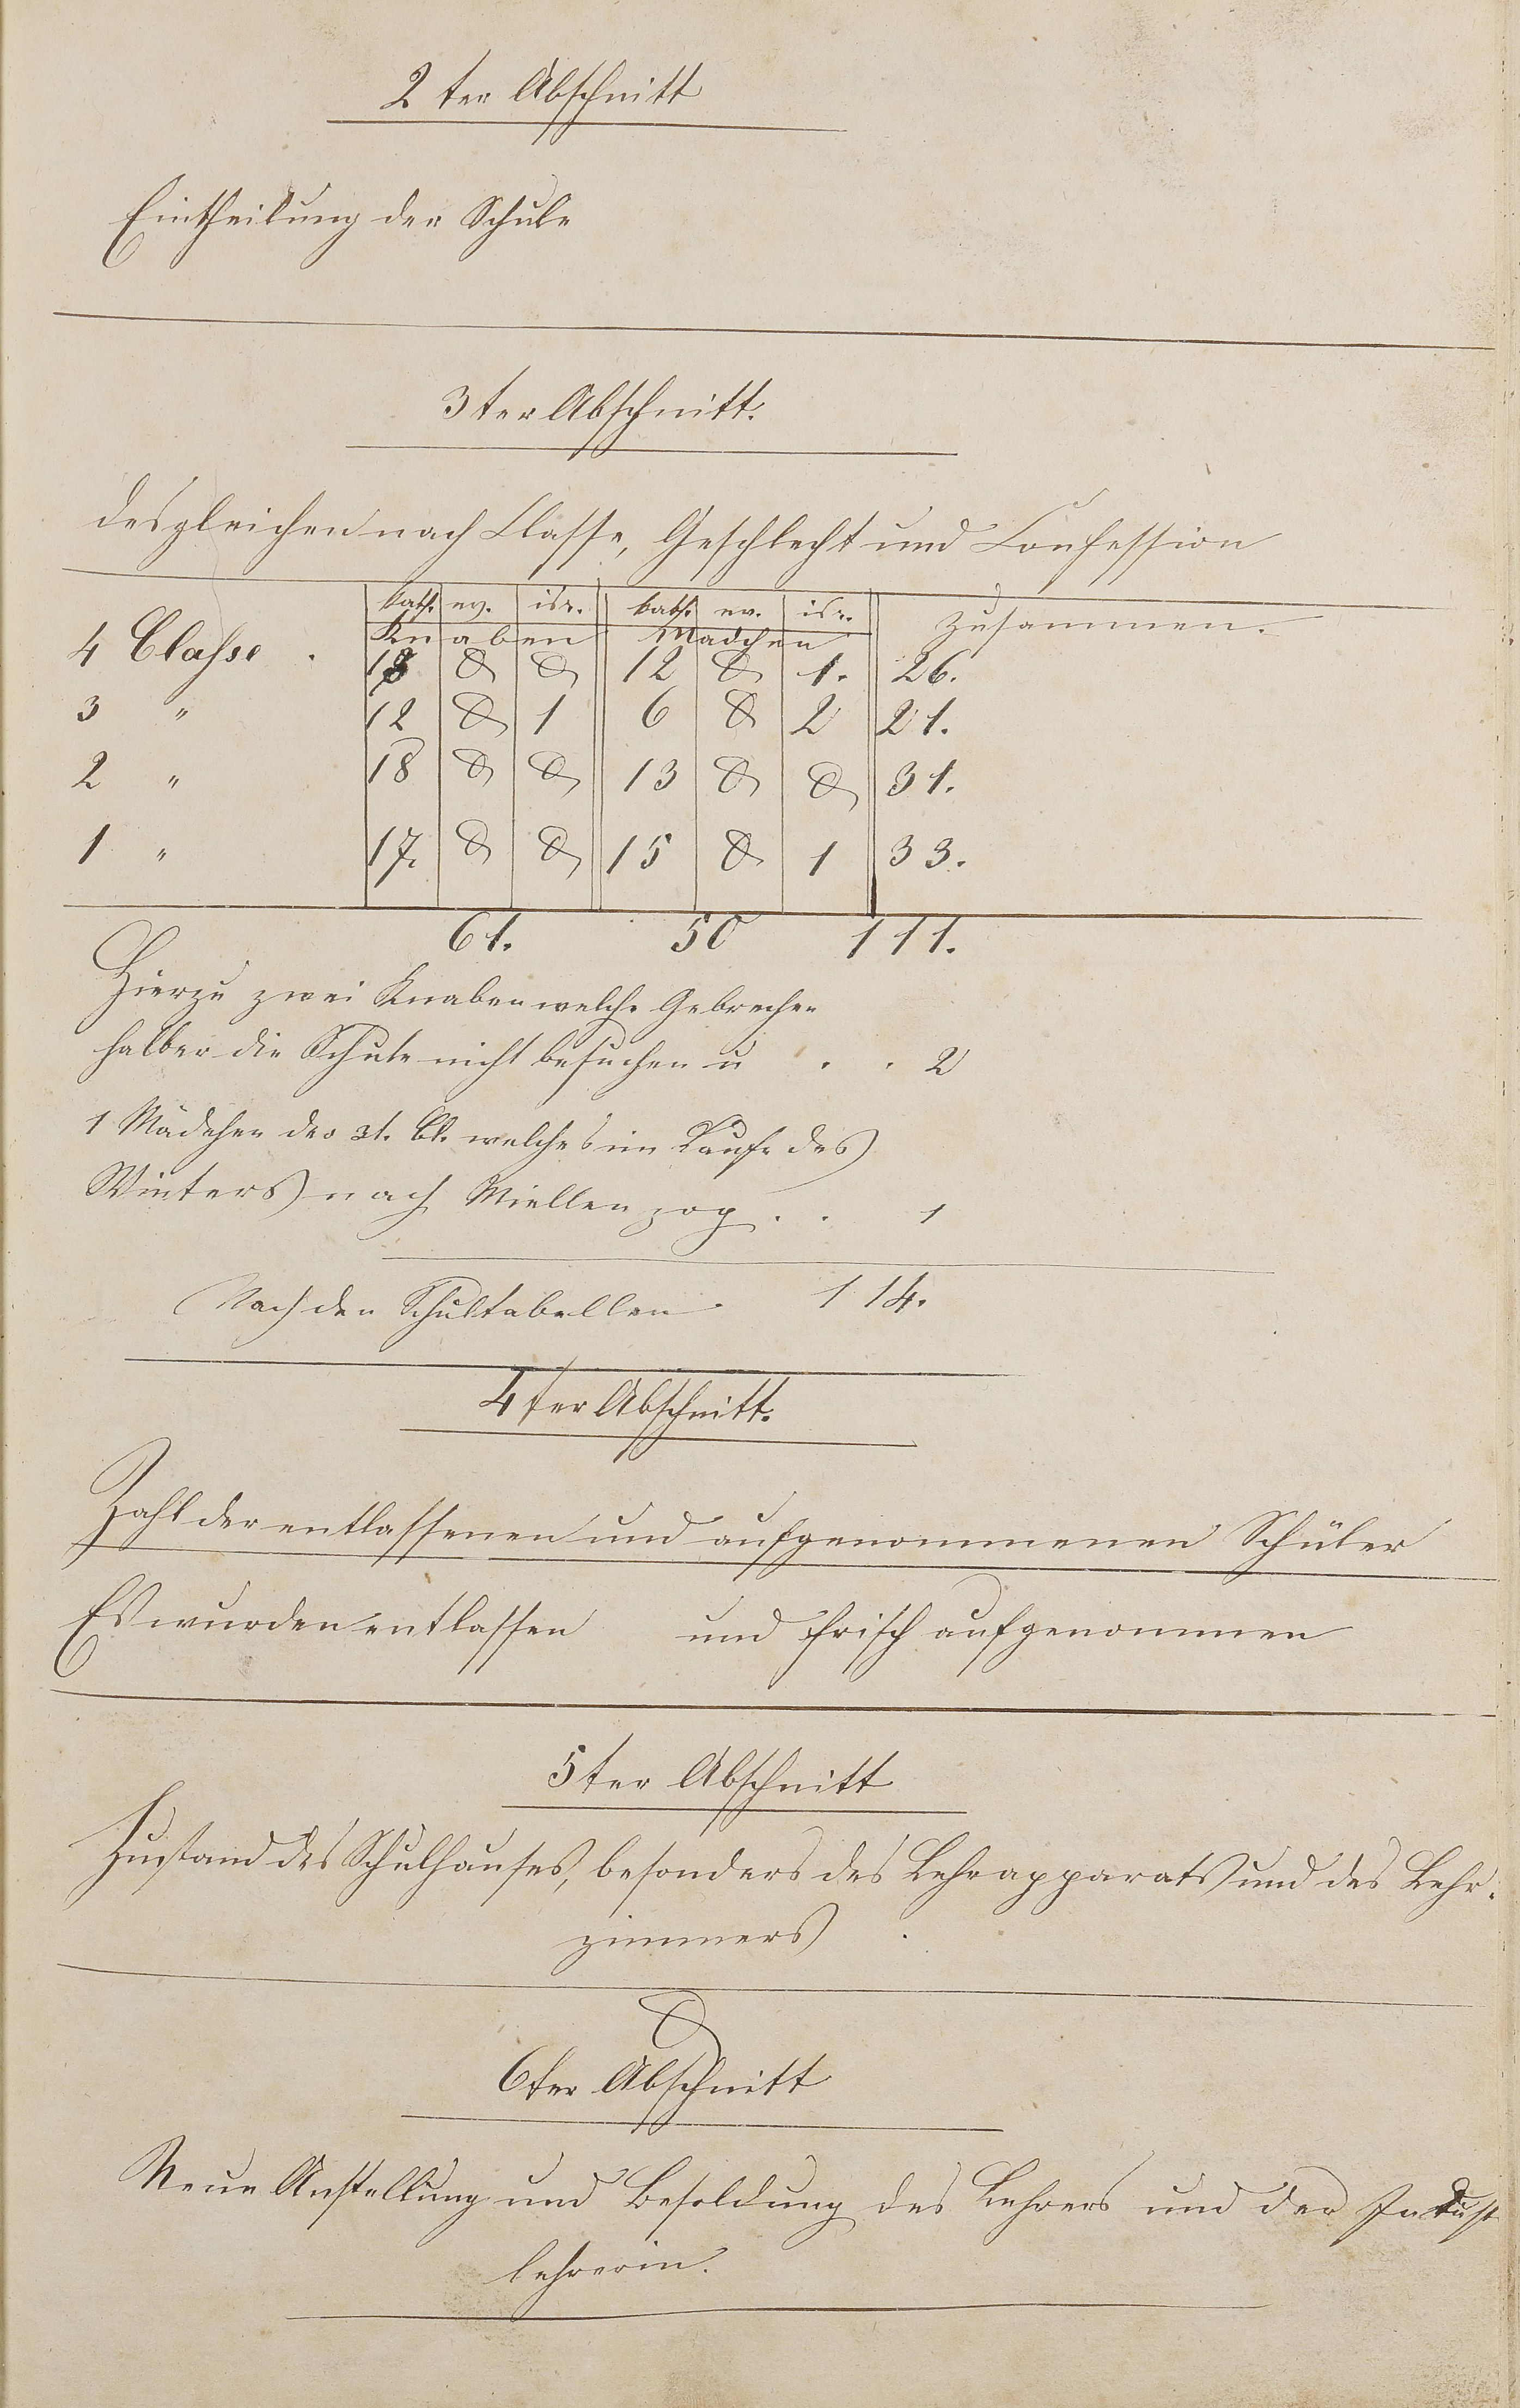 2ter Abschnitt
Eintheilung der Schule
3ter Abschnitt.
desgleichen nach Classe, Geschlecht und Confession
kath. ev. isr. kath. ev. isr. zusammen.
4 Classe . Knaben Mädchen
13 0 0 12 0 1. 26.
3 " 12 0 1 6 0 2 21.
2 " 18 0 0 13 0 0 31.
1 " 17. 0 0 15 0 1 33.
61. 50 111.
Hierzu zwei Knaben welche Gebrechen
halber die Schule nicht besuchen u . . 2
1 Mädchen der 3t. Cl. welches im Laufe des
Winters nach Miellen zog . . 1
Nach den Schultabellen . 114.
4ter Abschnitt.
Zahl der entlassenen und aufgenommenen Schüler
Es wurden entlassen und frisch aufgenommen
5ter Abschnitt
Zustand des Schulhauses, besonders des Lehrapparats und des Lehr-
zimmers .
6ter Abschnitt
Neue Anstellung und Besoldung des Lehrers und der Indust
lehrerin.